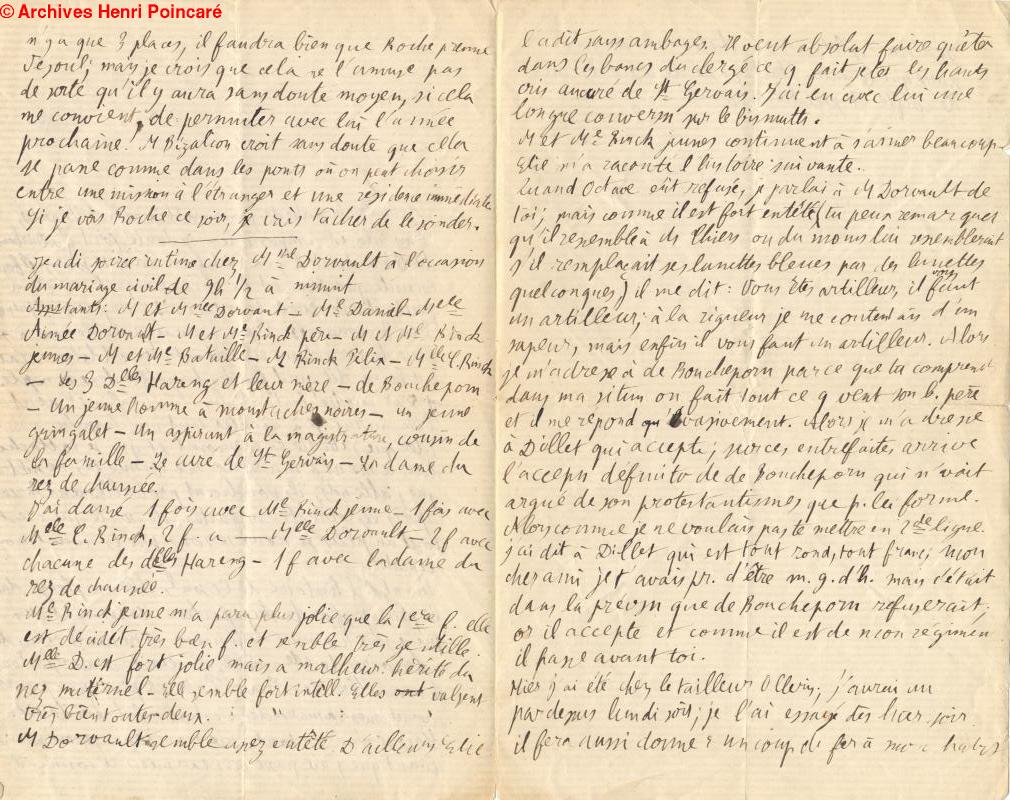 © Archives Henri Poincaré
n'y a que 3 places, il faudra bien que Roche prenne
Vesoul; mais je crois que cela ne l'amuse pas
de sorte qu'il y aura sans doute moyen, si cela
me convient, de permuter avec lui l'année
prochaine. M croit sans doute que cela
se passe comme dans les ponts où on peut choisir
entre une mission à l'étranger et une résidence immédiate
Si je vois Roche ce soir, je vais tâcher de le sonder.
Jeudi soirée intime chez M Dorvault à l'occasion
du mariage civil de 9h 1/2 à minuit
Assistants: M et Mme Dorvault – Me Daniel – Melle
Aimée Dorvault – M et Me Rinck père – M et Me Rinck
jeunes – M et Me Bataille – M Rinck Félix – Melle C. Rinck
– Les 3 Delles Hareng et leur mère – de Boucheporn
– Un jeune homme à moustaches noires – un jeune
gringalet – Un aspirant à la magistrature, cousin de
la famille – Le curé de St Gervais – La dame du
rez de chaussée.
J'ai dansé 1 fois avec Me Rinck jeune – 1 fois avec
Melle C. Rinck, 2 f. a — Melle Dorvault – 2 f avec
chacune des delles Hareng – 1 f avec la dame du
rez de chaussée.
Me Rinck jeune m'a paru plus jolie que la 1ère f. elle
est décidet très bien f. et semble très gentille.
Melle D. est fort jolie mais a malheur. hérité du
nez maternel – Elle semble fort intell. Elles ont valsent
très bien toutes deux.
M Dorvault semble assez entêté D'ailleurs Elie
l'a dit sans ambages. Il veut absolut faire quêter
dans les bancs du clergé ce q fait jeter les hauts
cris au curé de St Gervais. J'ai eu avec lui une
longue conversn sur le bismuth.
M et Me Rinck jeunes continuent à s'aimer beaucoup
Elie m'a raconté l'histoire suivante.
Quand Octave eût refusé, je parlai à M Dorvault de
toi; mais comme il est fort entêté (tu peux remarquer
qu'il ressemble à M Thiers ou du moins lui ressemblerait
s'il remplaçait ses lunettes bleues par des lunettes
quelconques) il me dit: Vous êtes artilleur, il vous faut
un artilleur; à la rigueur je me contentais d'un
sapeur, mais enfin il vous faut un artilleur. Alors
je m'adresse à de Boucheporn parce que tu comprends
dans ma situn on fait tout ce q veut son b. père
et il me répond évasivement. Alors je m'adresse
à Dillet qui accepte; sur ces entrefaites arrive
l'acceptn définitive de de Boucheporn qui n'avait
argué de son protestantisme que p. la forme.
Alors comme je ne voulais pas te mettre en 2de ligne
j'ai dit à Dillet qui est tout rond, tout franc; mon
cher ami je t'avais pr. d'être m. g. d'h. mais c'était
dans la prévisn que de Boucheporn refuserait;
or il accepte et comme il est de mon régiment
il passe avant toi.
Hier j'ai été chez le tailleur; j'aurai un
pardessus lundi soir; je l'ai essayé hier soir
il fera aussi donner un coup de fer à mes habits